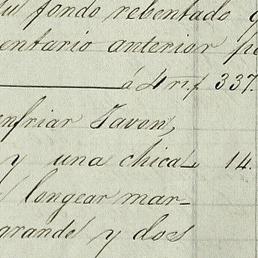 su fondo rebentado
entario anterior pe
a 4 rs 337.
enfriar Javon,
y una chica 14.
longear mar-
grande y dos